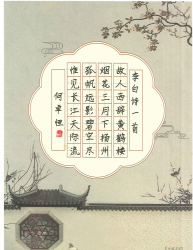 李白诗一首
故人西辞黄鹤楼
烟花三月下扬州
孤帆远影碧空尽
惟见长江天际流
何卓恒